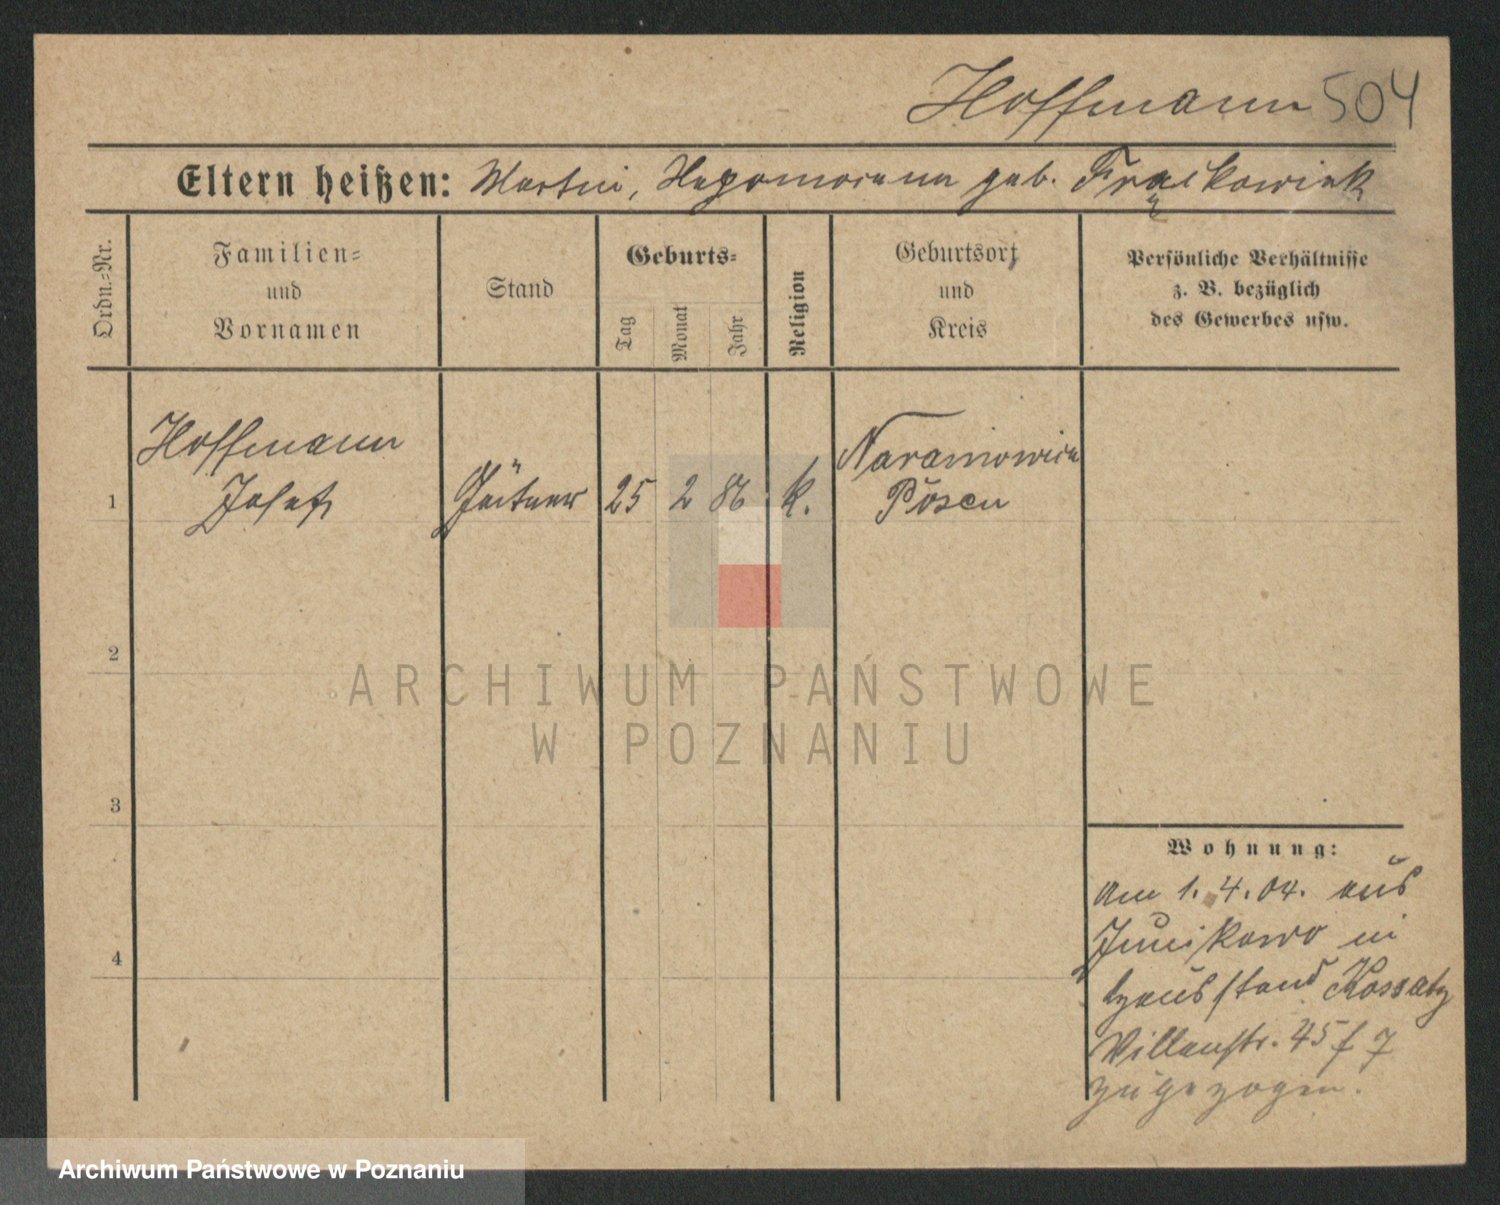 Hoffmann 504
Eltern heißen: Martin, Nepomocena geb. Frąckowiak
Ordn.-Nr.
Familien-
und
Vornamen
Stand
Geburts-
Tag
Monat
Jahr
Religion
Geburtsort
und
Kreis
Persönliche Verhältnisse
z. B. bezüglich
des Gewerbes usw.
Hoffmann
1 Josef Gärtner 25 2 86 k.
Naramowice
Posen
2
3
4
Wohnung:
Am 1. 4. 04. aus
Junikowo in
Hausstand
Villenstr. 45
zugezogen.
ARCHIWUM PAŃSTWOWE
W POZNANIU
Archiwum Państwowe w Poznaniu